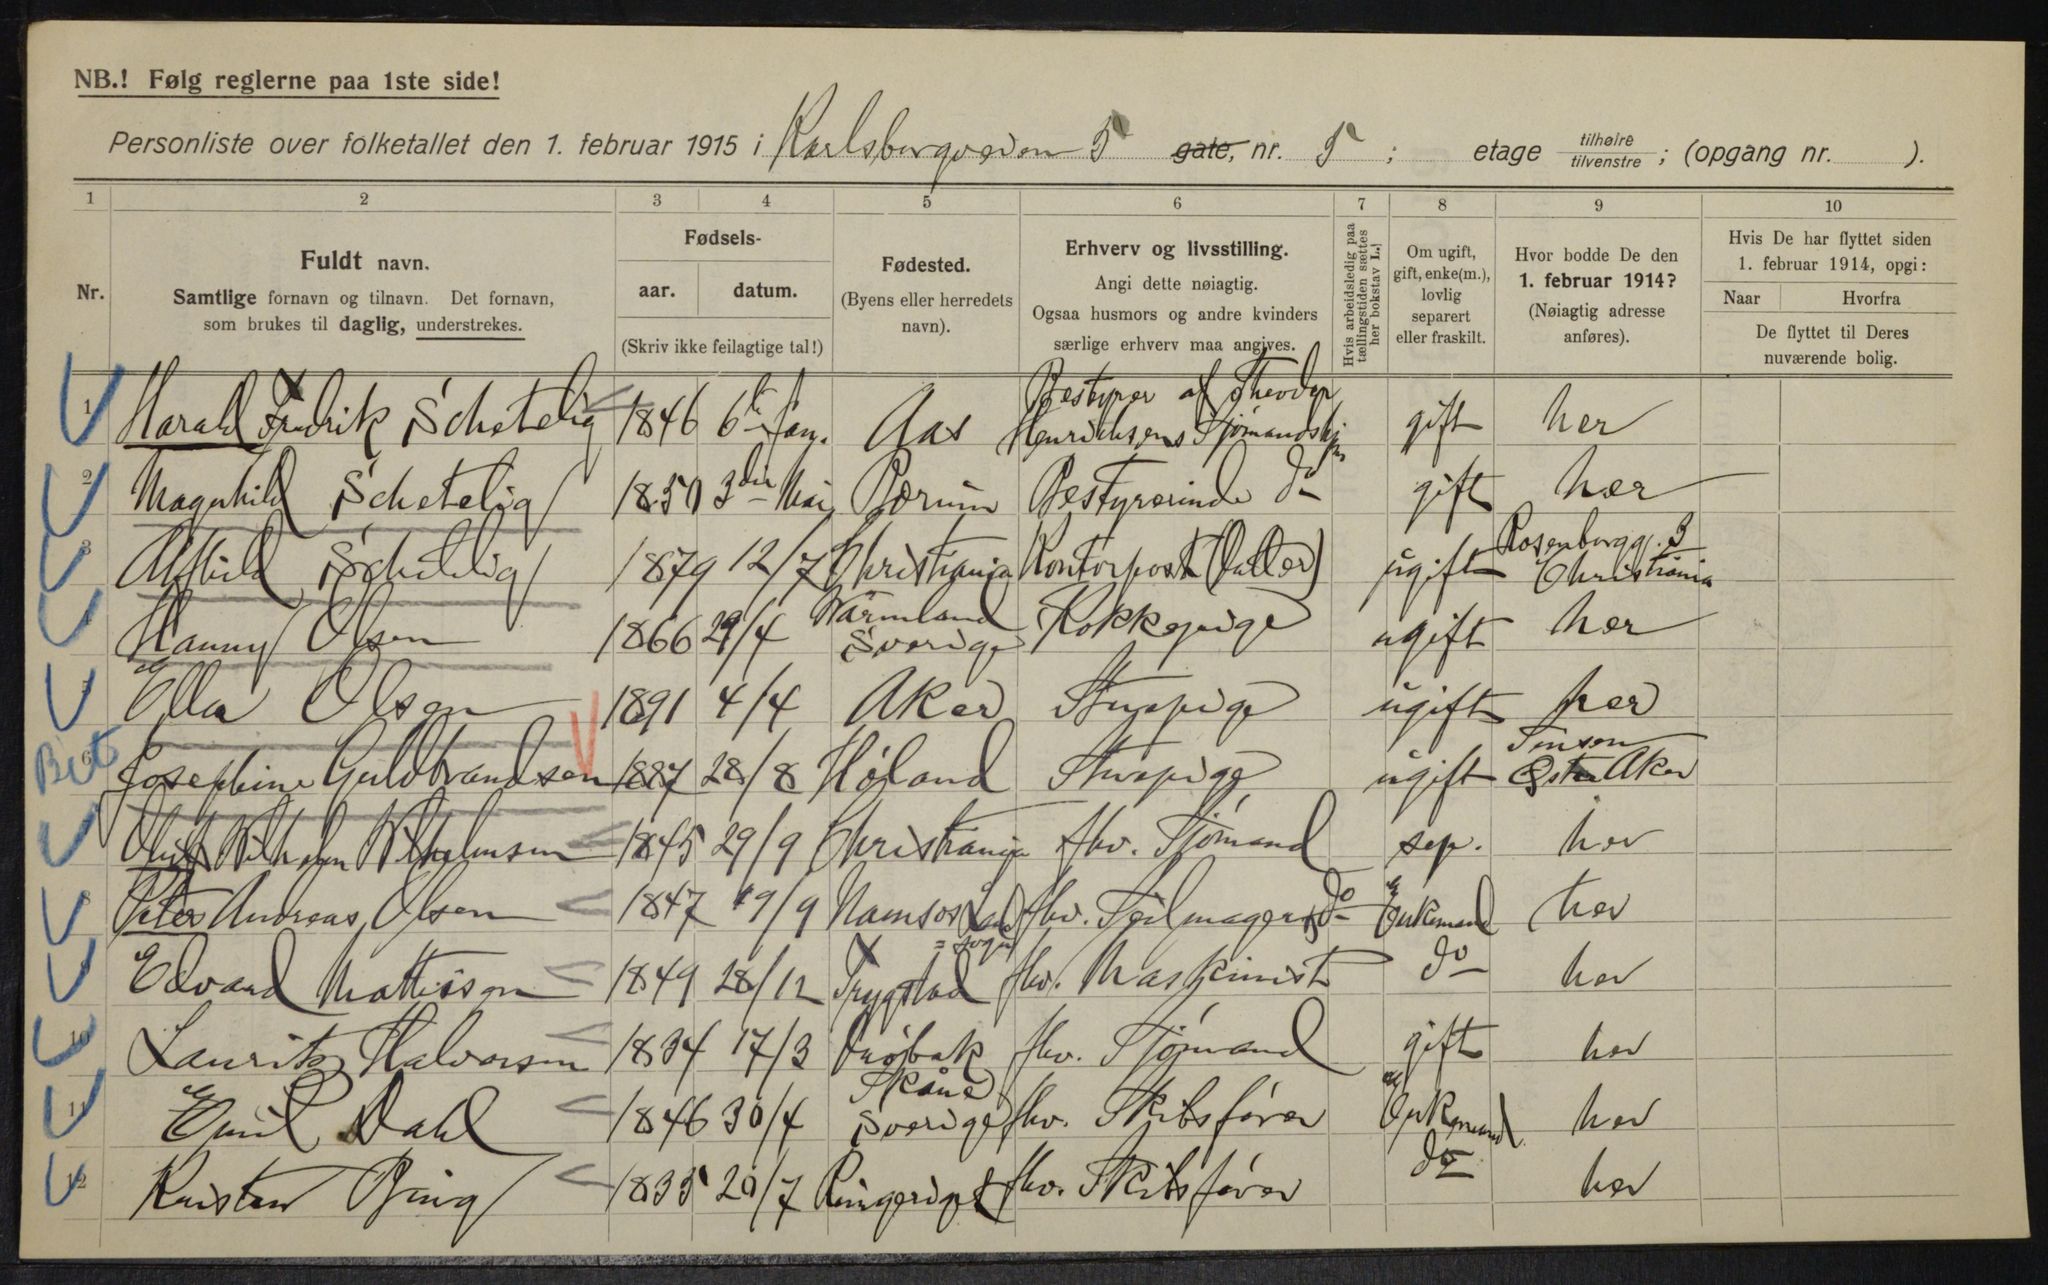 NB.! Følg reglerne paa 1ste side!
Personliste over folketallet den 1. februar 1915 i Karlsborgveien 5 gate, nr. 5 ; etage tilhøire tilvenstre ; (opgang nr. ).
1 2 3 4 5 6 7 8 9 10
Nr.
Fuldt navn.
Samtlige fornavn og tilnavn. Det fornavn,
som brukes til daglig, understrekes.
Fødsels-
aar. datum.
(Skriv ikke feilagtige tal!)
Fødested.
(Byens eller herredets
navn).
Erhverv og livsstilling.
Angi dette nøiagtig.
Ogsaa husmors og andre kvinders
særlige erhverv maa angives.
Hvis arbeidsledig paa
tællingstiden sættes
her bokstav L.!
Om ugift,
gift, enke(m.),
lovlig
separert
eller fraskilt.
Hvor bodde De den
1. februar 1914?
(Nøiagtig adresse
anføres).
Hvis De har flyttet siden
1. februar 1914, opgi:
Naar Hvorfra
De flyttet til Deres
nuværende bolig.
1 Harald Fredrik Schetelig 1846 6te Jan. Aas Bestyrer af Theodor Henrichsens Sjømandshjem gift her
2 Magnhild Schetelig 1850 3die Mai Bærum Bestyrerinde do gift her
3 Alfhild Schetelig 1879 12/7 Christiania Kontorpost (Datter) ugift Rosenborgg. 3 Christiania
4 Hanny Olsen 1866 29/4 Värmland Sverige Kokkepige ugift her
5 Ella Olsen 1891 4/4 Aker Stuepige ugift her
6 Josephine Guldbrandsen 1887 28/8 Høland Stuepige ugift Jonsen Østre Aker
Wilhelm Wilhelmsen 1845 29/9 Christiania fhv. Sjømand sep. her
8 Peter Andreas Olsen 1847 19/9 Namsos fhv. Seilmager do Enkemand her
9 Edvard Mattisen 1849 28/12 Trygstad fhv. Maskinist do her
10 Lauritz Halvorsen 1834 17/3 Drøbak fhv. Sjømand gift her
11 Emil Dahl 1846 30/4 Skåne Sverige fhv. Skibsfører Enkemand her
12 Kristen Bing 1835 20/7 Ringerige fhv. Skibsfører do her